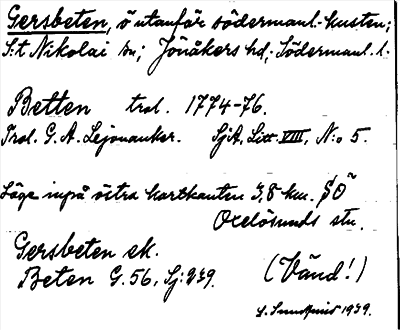 Gersbeten, ö utanför södermanl. kusten;
S:t Nikolai sn; Jönåkers hd; Södermanl. l.
Betten trol. 1774-76.
Trol. G. A. Lejonanker. SjA, Litt. VIII, N:o 5.
Läge inpå östra kartkanten 3,8 km. SÖ
Oxelösunds stn.
Gersbeten ek.
Beten G. 56, Sj: 239.
(Vänd!)
S. Sundqvist 1939.